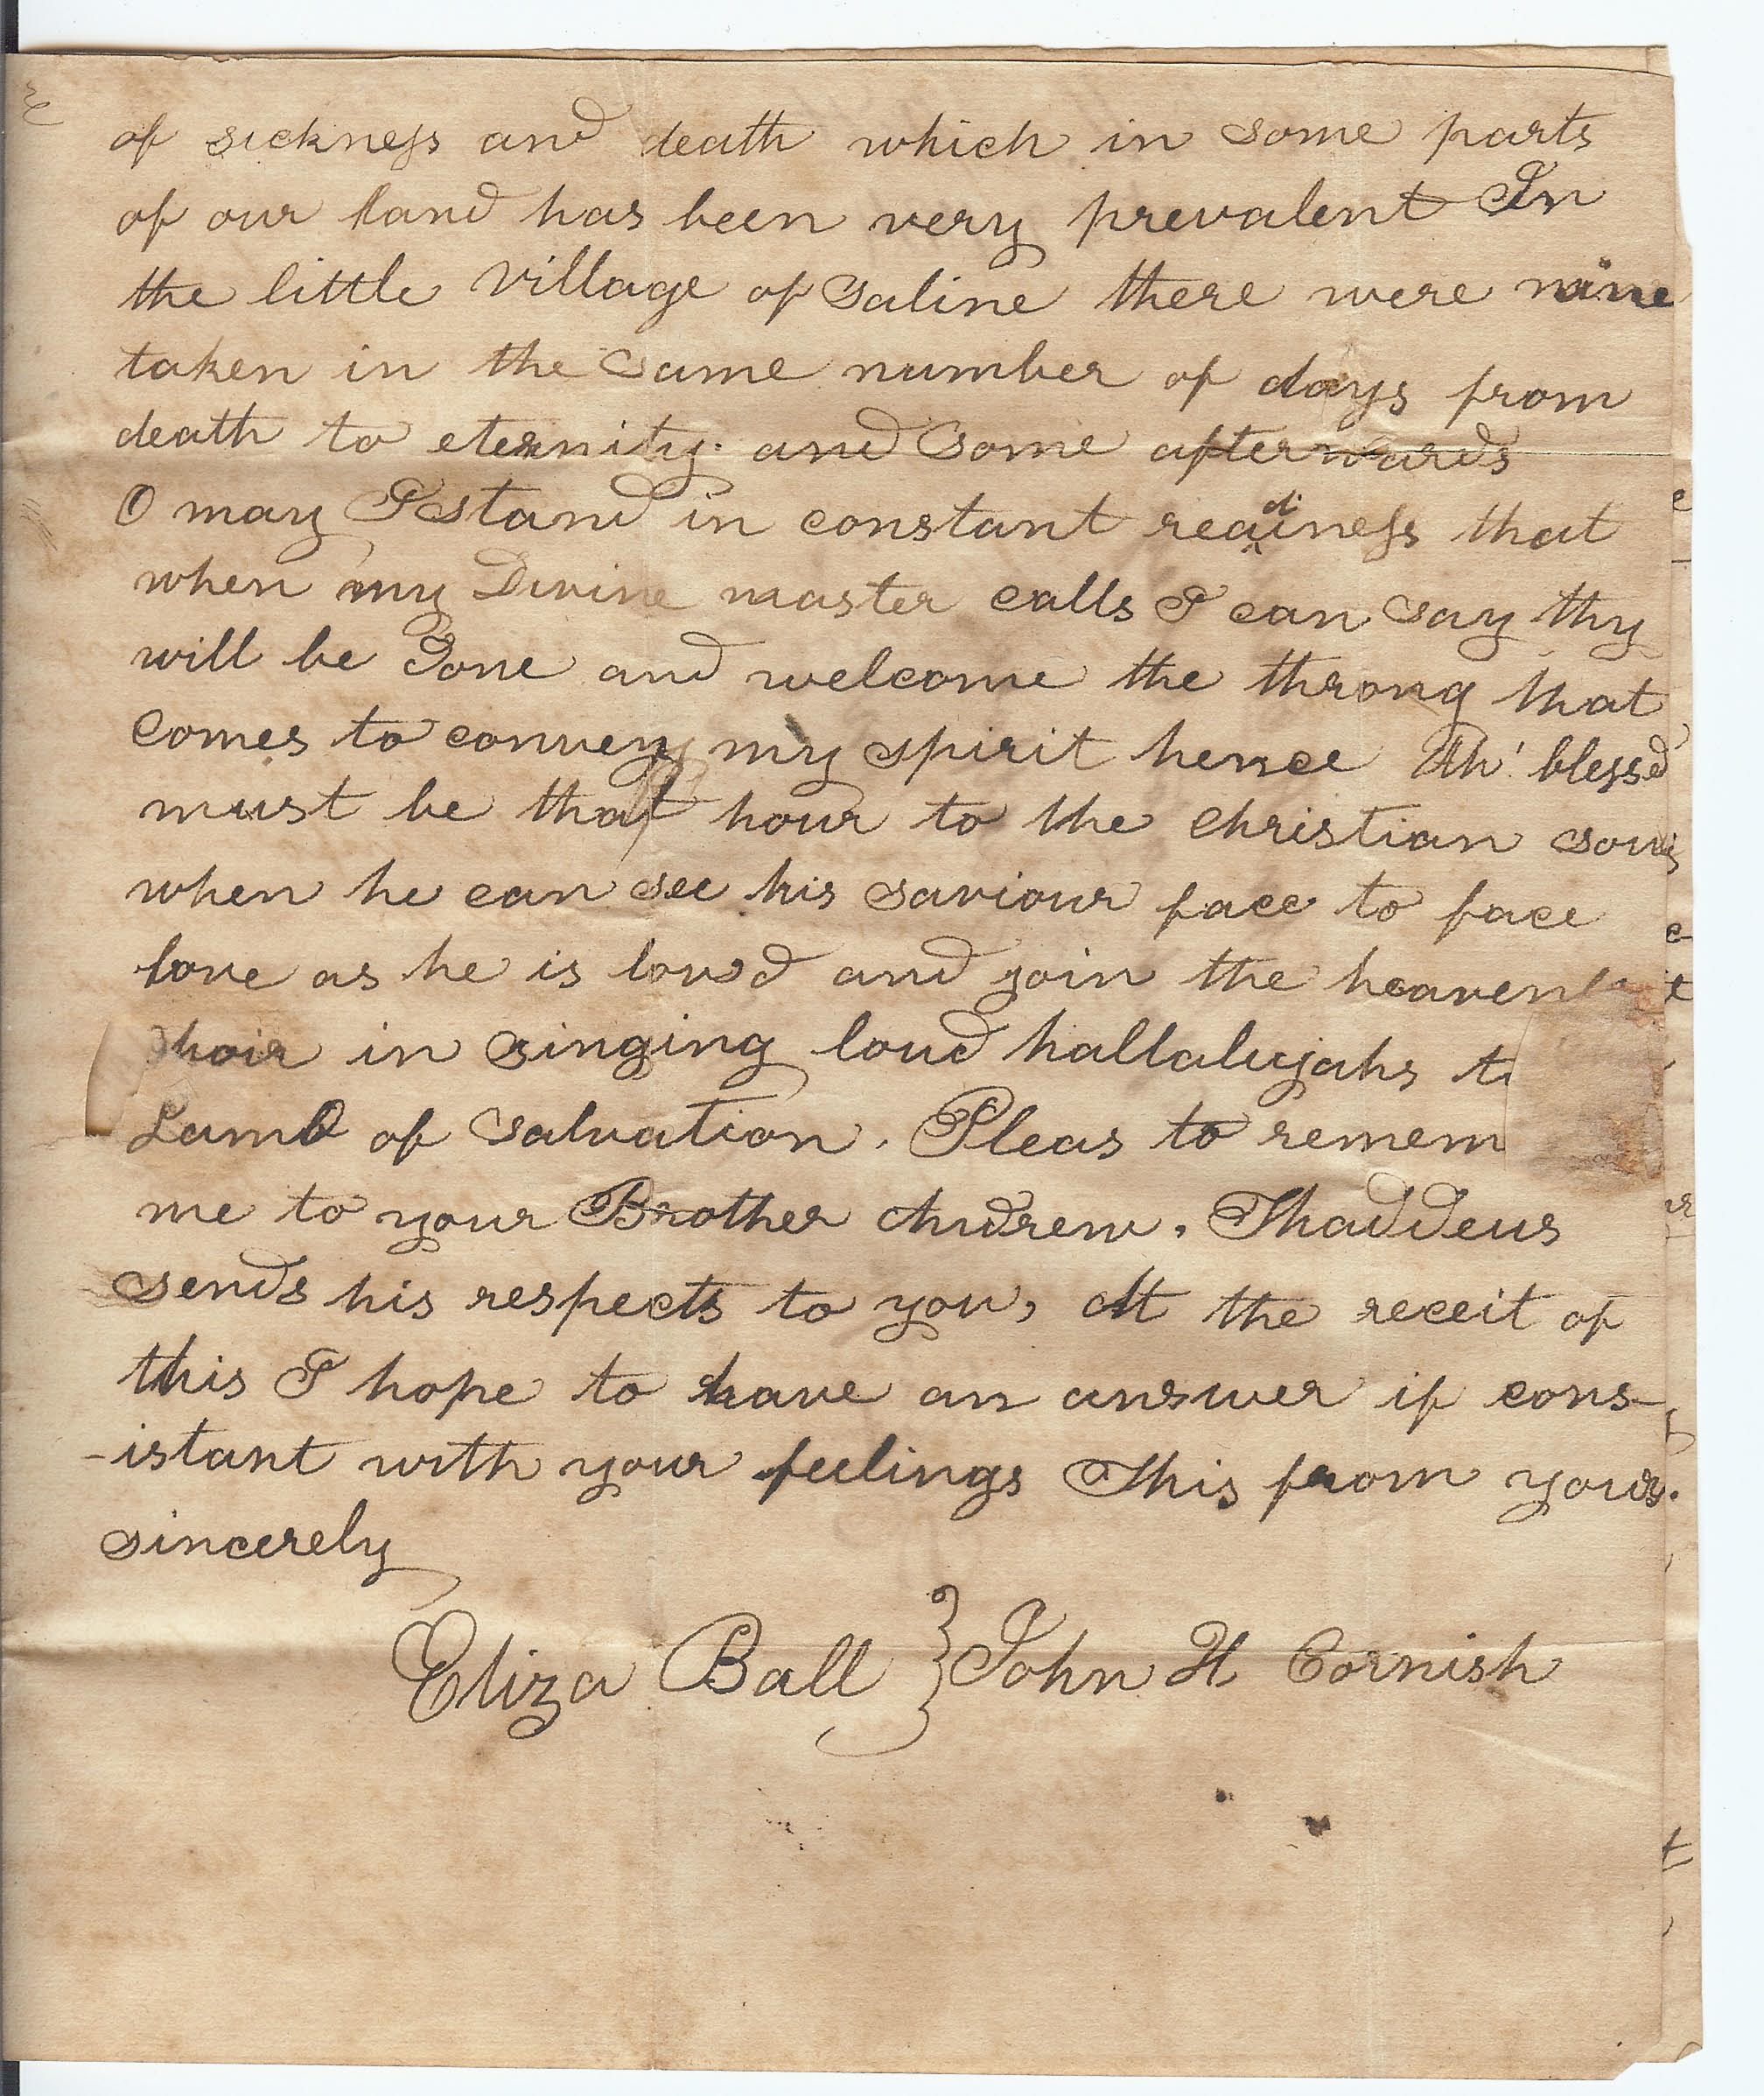 of sickness and death which in some parts
of our land has been very prevalent In
the little village of Saline there were nine
taken in the same number of days from
death to eternity. and some afterwards
O may I stand in constant readiness that
when my Divine master calls I can say thy
will be done and welcome the throng that
comes to convey my spirit hence Ah! blessd
must be that hour to the christian
when he can see his saviour face to face
love as he is lov'd and join the
choir in singing loud hallalujahs
Lamb of salvation. Pleas to remem
me to your Brother Andrew. Thaddeus
sends his respects to you, At the receit of
this I hope to have an answer if cons-
-istant with your feelings This from yours.
sincerely
Eliza Ball } John H Cornish